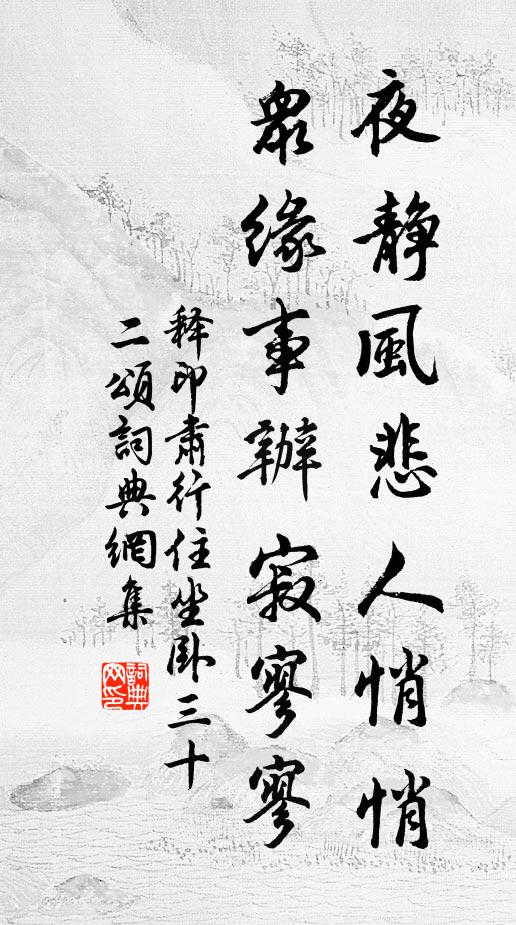 夜靜風悲人悄悄
眾緣事辦寂寥寥
釋印肅行住坐臥三十
二頌詞典網集
詞典網印